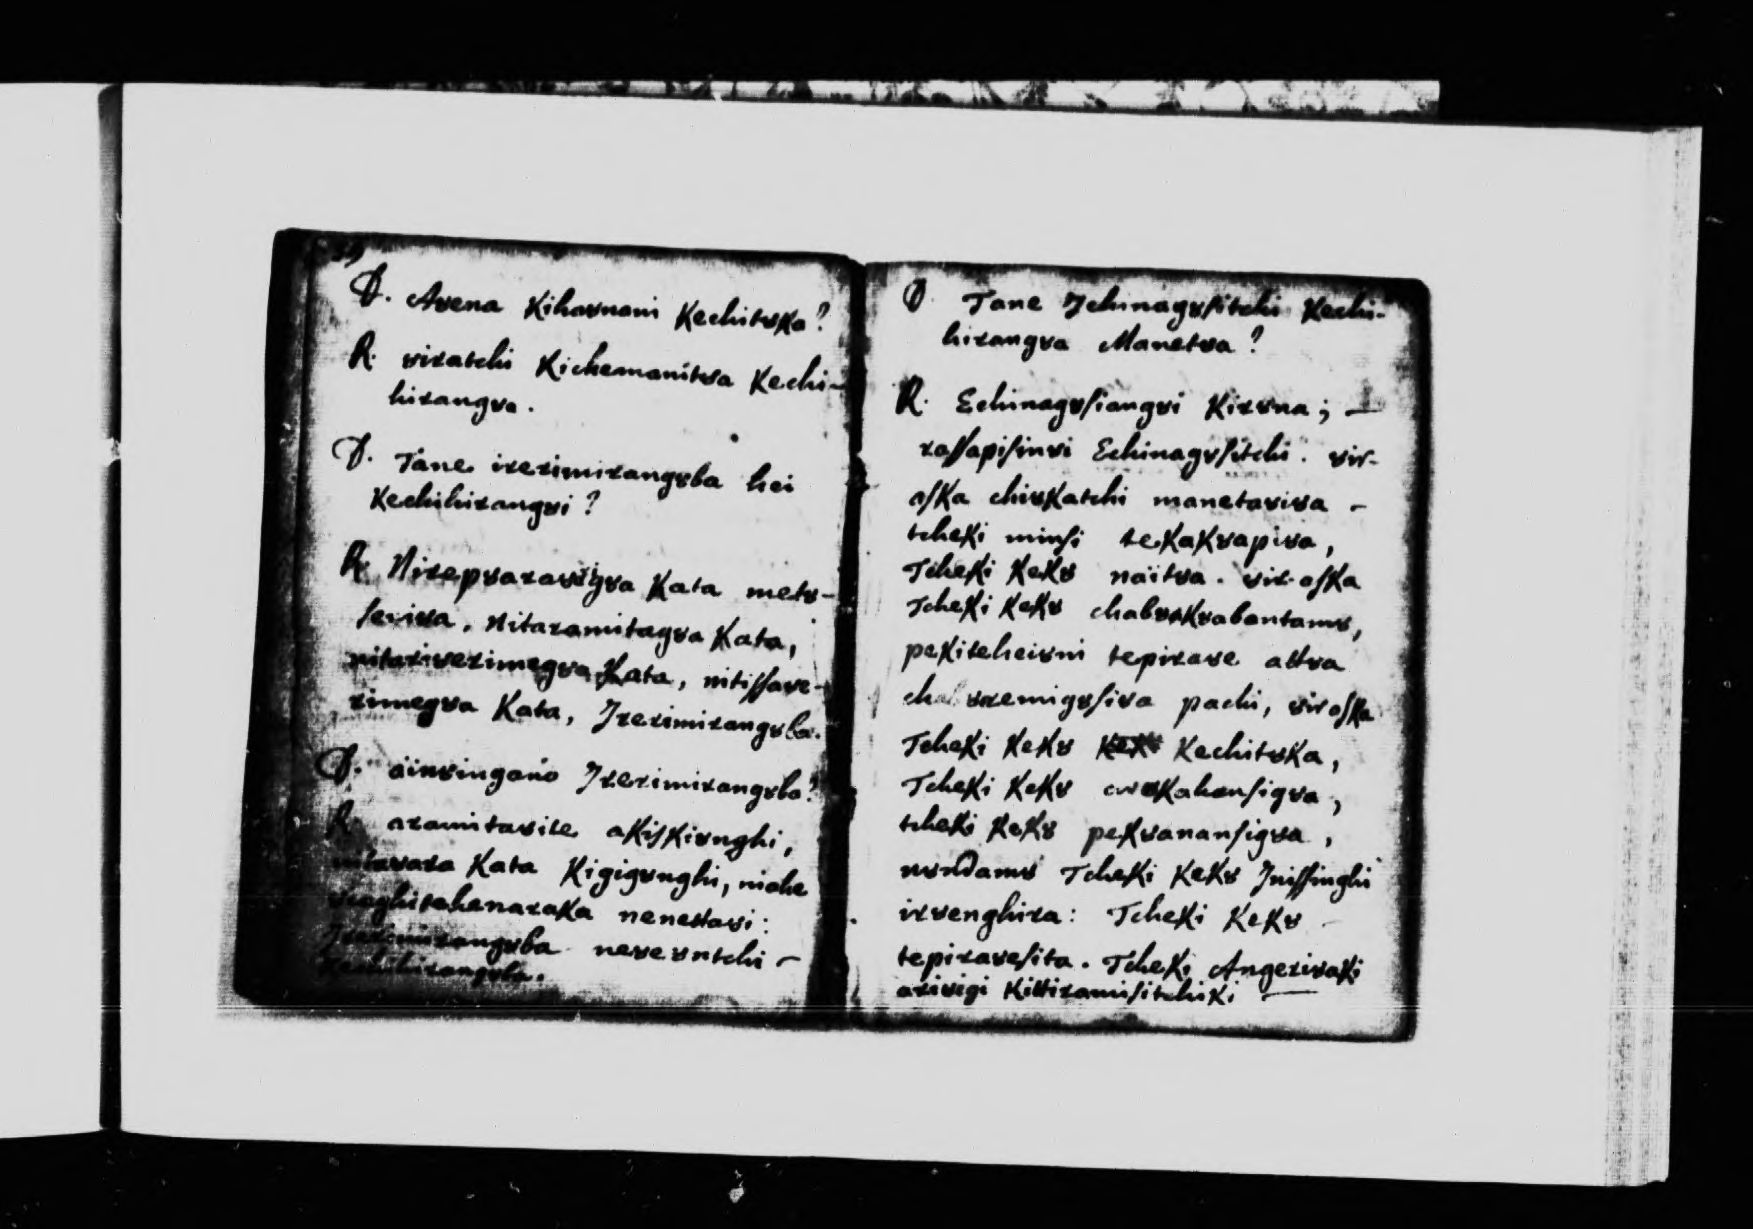 D. Avena Kihavnani Kechitvka?
R. viratchi Kichemanitva Kechi-
hirangva.
D. Tane irerimirangvba hei
Kechihirangvi?
R. Nirepvaravigva Kata metv-
seviva, nitaramitagva Kata,
nitariverimegva Kata, nitissave-
rimegva Kata, Jrerimirangvba.
D. ainvingano Jrerimirangvba?
R. aramitavile akiskivnghi,
Kata Kigigvnghi, niahe
nenettavi:
Jrerimirangvba nevevntchi -
Kechihirangvba.
D. Tane Jchinagvsitchi Kechi-
hirangva Manetva?
R. Echinagvsiangvi Kirvna; —
rassapisinvi Echinagvsitchi. vir-
oska chivkatchi manetaviva -
tcheki minsi tekakvapiva,
Tcheki Kekv naitva. vir-oska
Tcheki Kekv
pekitcheivni tepirave attva
pachi, viroska
Tcheki Kekv Kechitvka,
Tcheki Kekv
tcheki Kekv pekvanansigva,
mvndamv Tcheki Kekv Jnissinghi
irvenghira: Tcheki Kekv -
tepiravesita. Tcheki Angerivaki
arivigi Kittiramisitchiki —